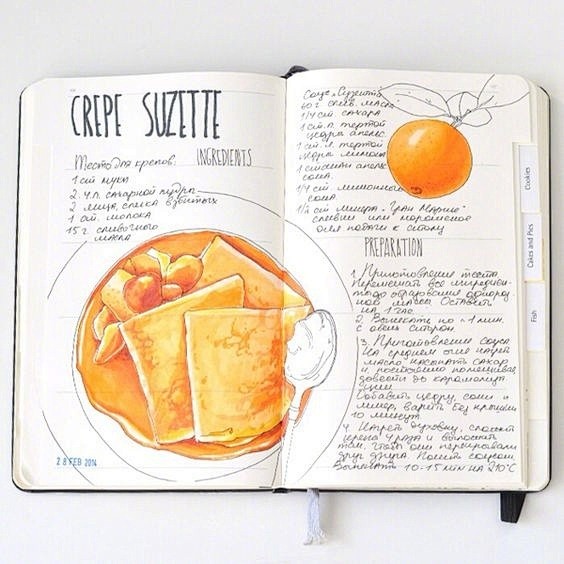 CREPE SUZETTE
INGREDIENTS
Тесто для крепов:
1 ст мука
2 ч.л. сахарной пудры
2 яйца, слегка взбитых
1 ст. молока
15 г сливочного
масла
28 FEB 2014
Соус „Сузетта"
60 г слив. масла
1/4 ст сахара
1 ст.л. тертой
цедры апельс.
1 ст.л. тертой
цедры лимона
1 стакан апельс.
сока
1/4 ст лимонного
сока
1/2 ст ликера „Гран Марнье"
сливки или мороженое
для подачи к столу
PREPARATION
1. Приготовление теста.
Перемешать все ингредиен-
ты до образования однород-
ной массы. Оставить
на 1 час.
2. Выпекать по ~1 мин.
с обеих сторон.
3. Приготовление соуса
На среднем огне нагреть
масло, насыпать сахар
и, постоянно помешивая,
довести до карамелиза
ции
Добавить цедру, соки и
ликер, варить без крышки
10 минут
4. Нагреть духовку, сложить
крепы 4 раза и выложить
так, чтобы они перекрывали
друг друга. Полить соусом.
Выпекать 10-15 мин на 210°C
Cookies
Cakes and Pies
Fish